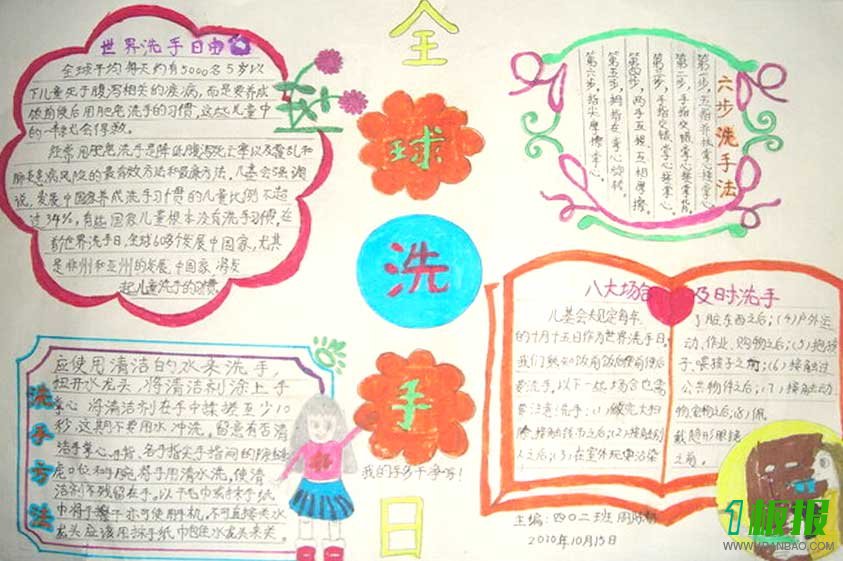 世界洗手日
全球平均每天约有5000名5岁以
下儿童死于腹泻相关的疾病,而是要养成
饭前便后用肥皂洗手的习惯,这些儿童中
的一半就会得救。
经常用肥皂洗手是降低腹泻死亡率以及霍乱和
病风险的最有效方法和最廉方法,儿基会强调
说,发展中国家养成洗手习惯的儿童比例不超
过34%,有些国家儿童根本没有洗手习惯,在
前世界洗手日,全球60多个发展中国家,尤其
是非洲和亚洲的发展中国家,将发
起儿童洗手的习惯
全
球
洗
手
日
六步洗手法
第一步,五指并拢掌心搓掌心
第二步,手指交错掌心搓掌背,
第三步,手指交错掌心搓掌心,
第四步,两手互握互相摩擦,
第五步,拇指在掌心旋转,
第六步,指尖摩擦掌心。
八大场合 及时洗手
儿基会规定每年
的十月十五日作为世界洗手日,
我们熟知饭前饭后便前便后
要洗手,以下一些场合也需
要注意洗手:(1)做完大扫
除,接触钱币之后;(2)接触别
人之后;(3)在室外玩耍沾染
了脏东西之后;(4)户外运
动,作业、购物之后;(5)抱孩
子、喂孩子之前;(6)接触过
公共物件之后;(7)接触动
物宠物之后;(8)佩
戴隐形眼镜
之前。
洗手方法
应使用清洁的水来洗手,
扭开水龙头,将清洁剂涂上手
掌心,将清洁剂在手中揉搓至少10
秒,这期不要用水冲洗。留意有否清
洁手掌心、手指、各手指尖手指间的
虎口位和手腕,将手用清水洗,使清
洁剂不残留在手。以干毛巾或抹手纸
巾将手擦干亦可使用手机,不可直接关水
龙头应该用抹手纸巾包住水龙头来关。
我的手多干净呀!
主编:四〇二班
2010年10月15日
1板报
WWW.YBANBAO.COM